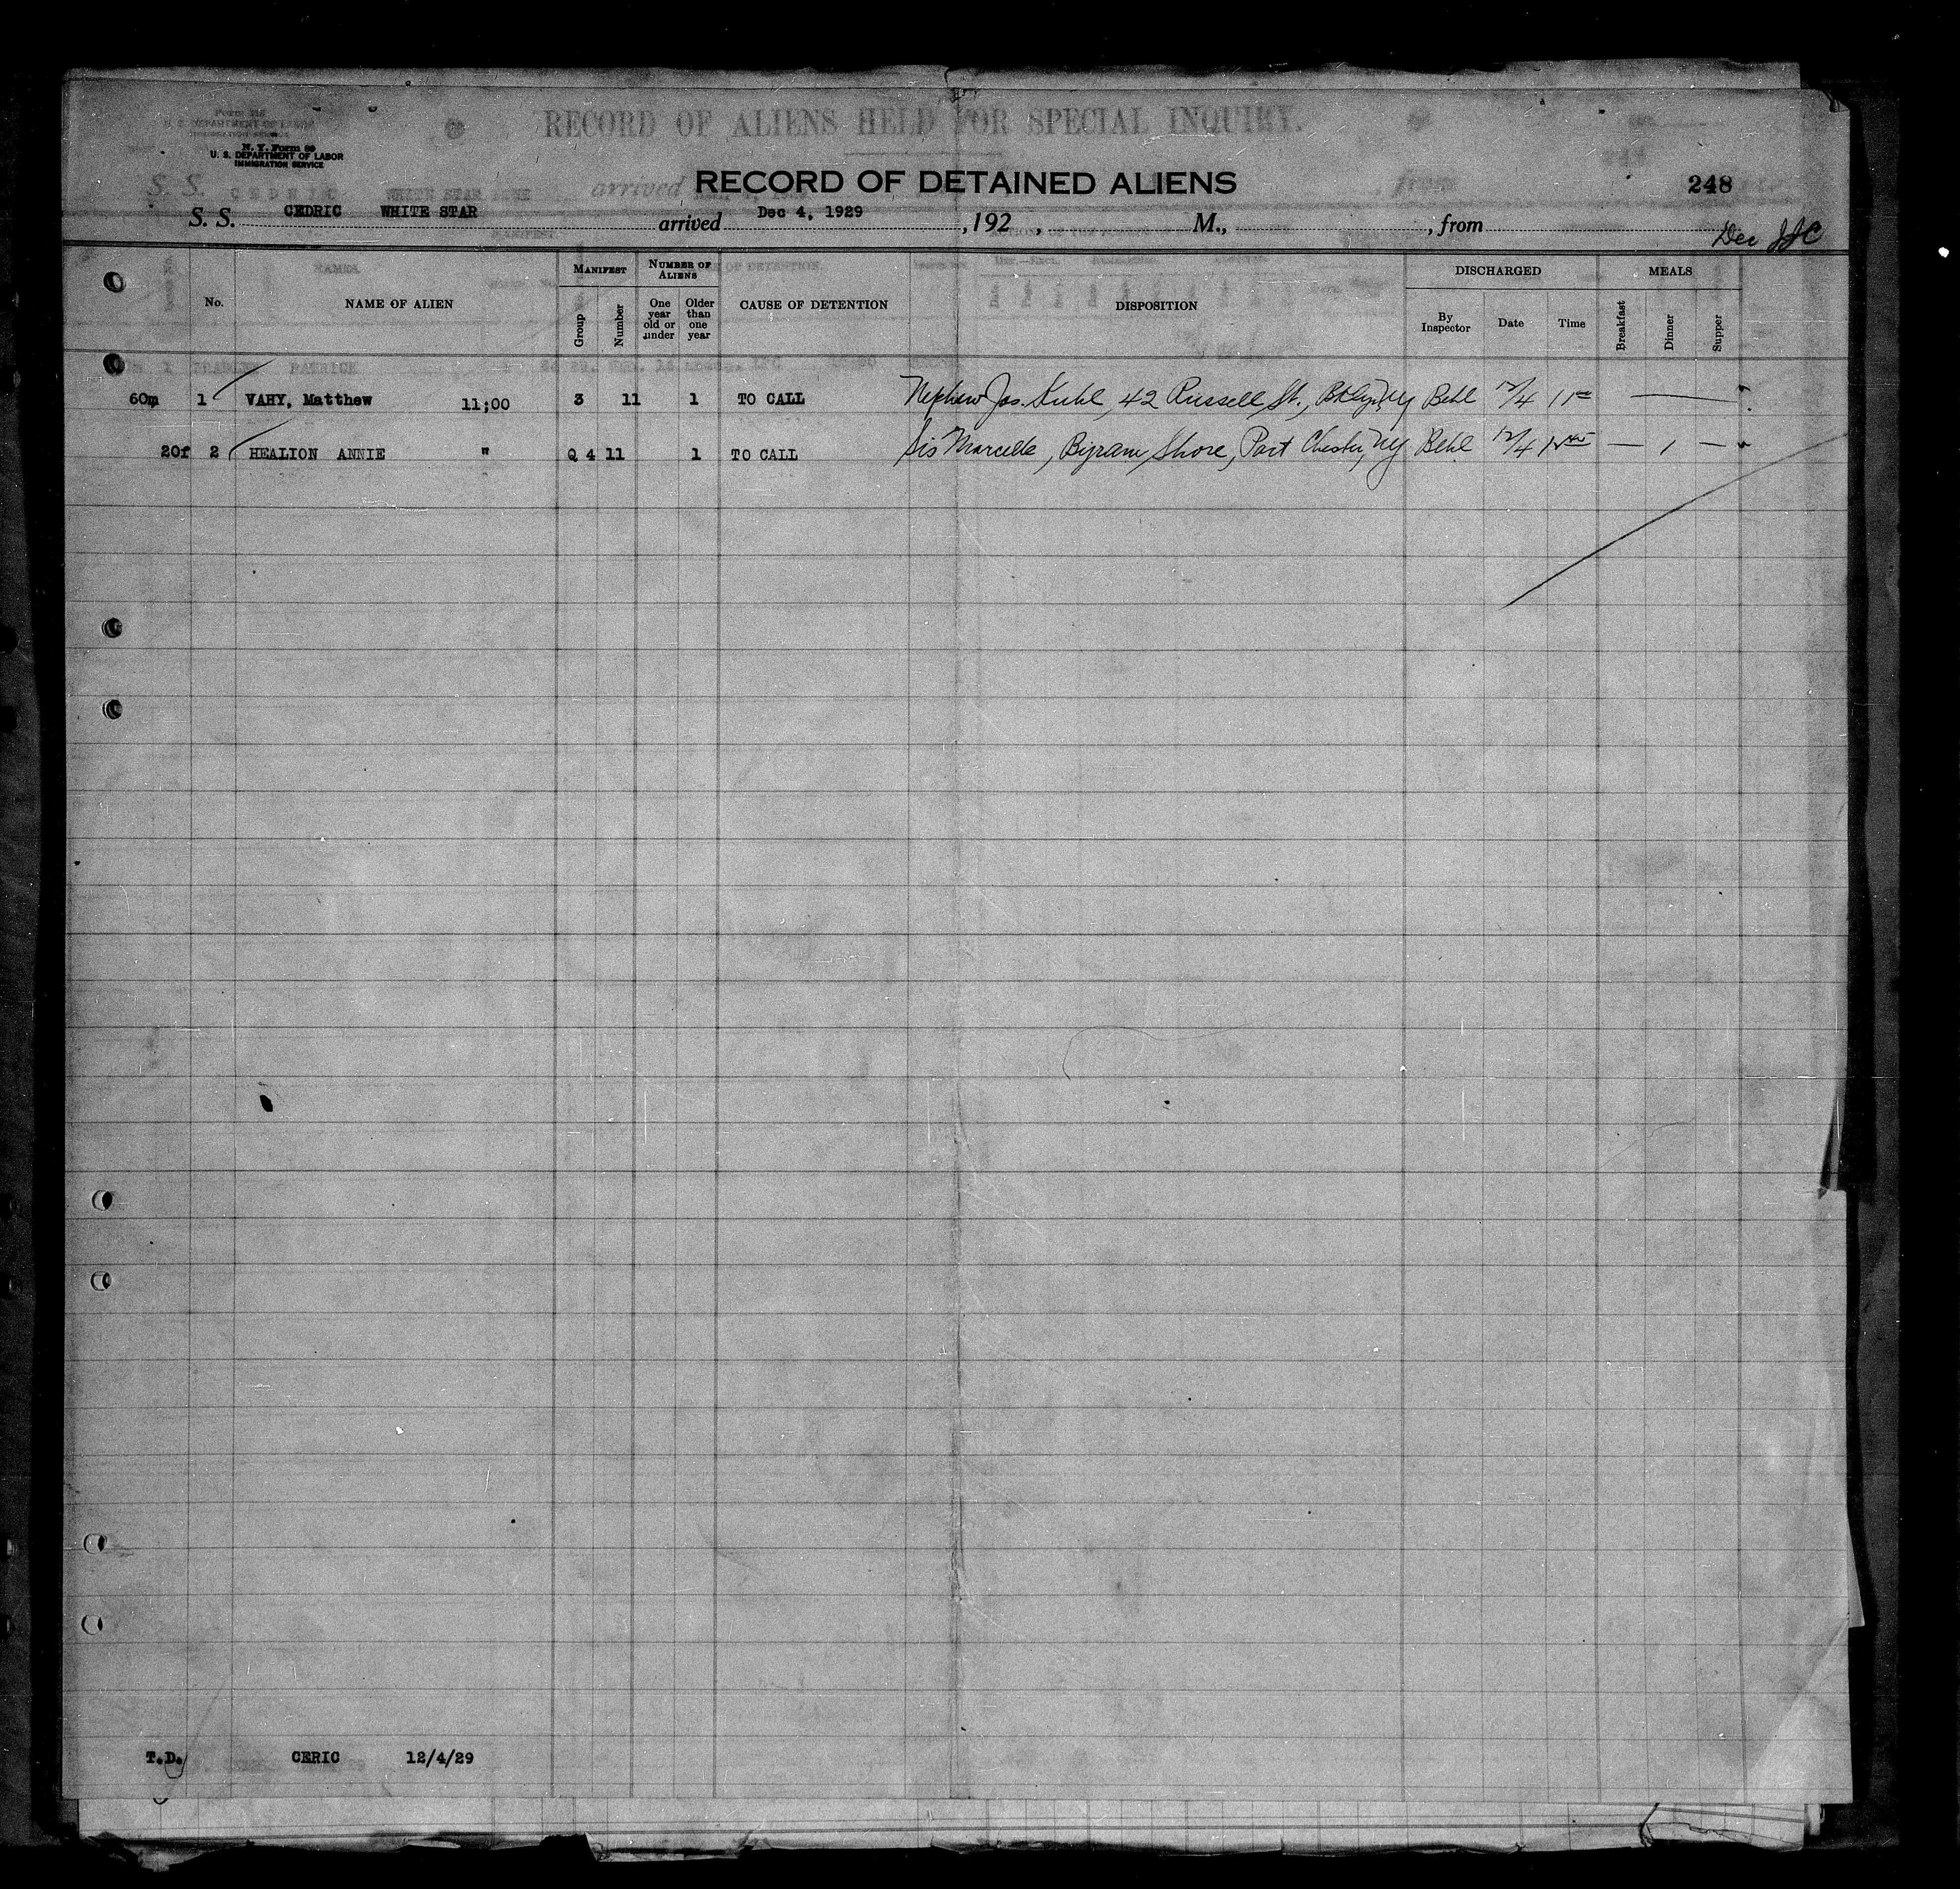 RECORD OF ALIENS HELD FOR SPECIAL INQUIRY.
N. Y. Form 89
U. S. DEPARTMENT OF LABOR
IMMIGRATION SERVICE
RECORD OF DETAINED ALIENS
248
S. S. CEDRIC WHITE STAR arrived Dec 4, 1929, 192 , M., , from
Dec JJC
No. NAME OF ALIEN MANIFEST Group Number NUMBER OF ALIENS One year old or under Older than one year CAUSE OF DETENTION DISPOSITION DISCHARGED By Inspector Date Time MEALS Breakfast Dinner Supper
60m 1 VAHY, Matthew 11;00 3 11 1 TO CALL Nephew Jos. Kuhl, 42 Russell St., Bklyn, NY Behl 12/4 11
20f 2 HEALION ANNIE " Q 4 11 1 TO CALL Sis Marcella, Byram Shore, Port Chester, NY Behl 12/4 — 1 —
T.D. CERIC 12/4/29